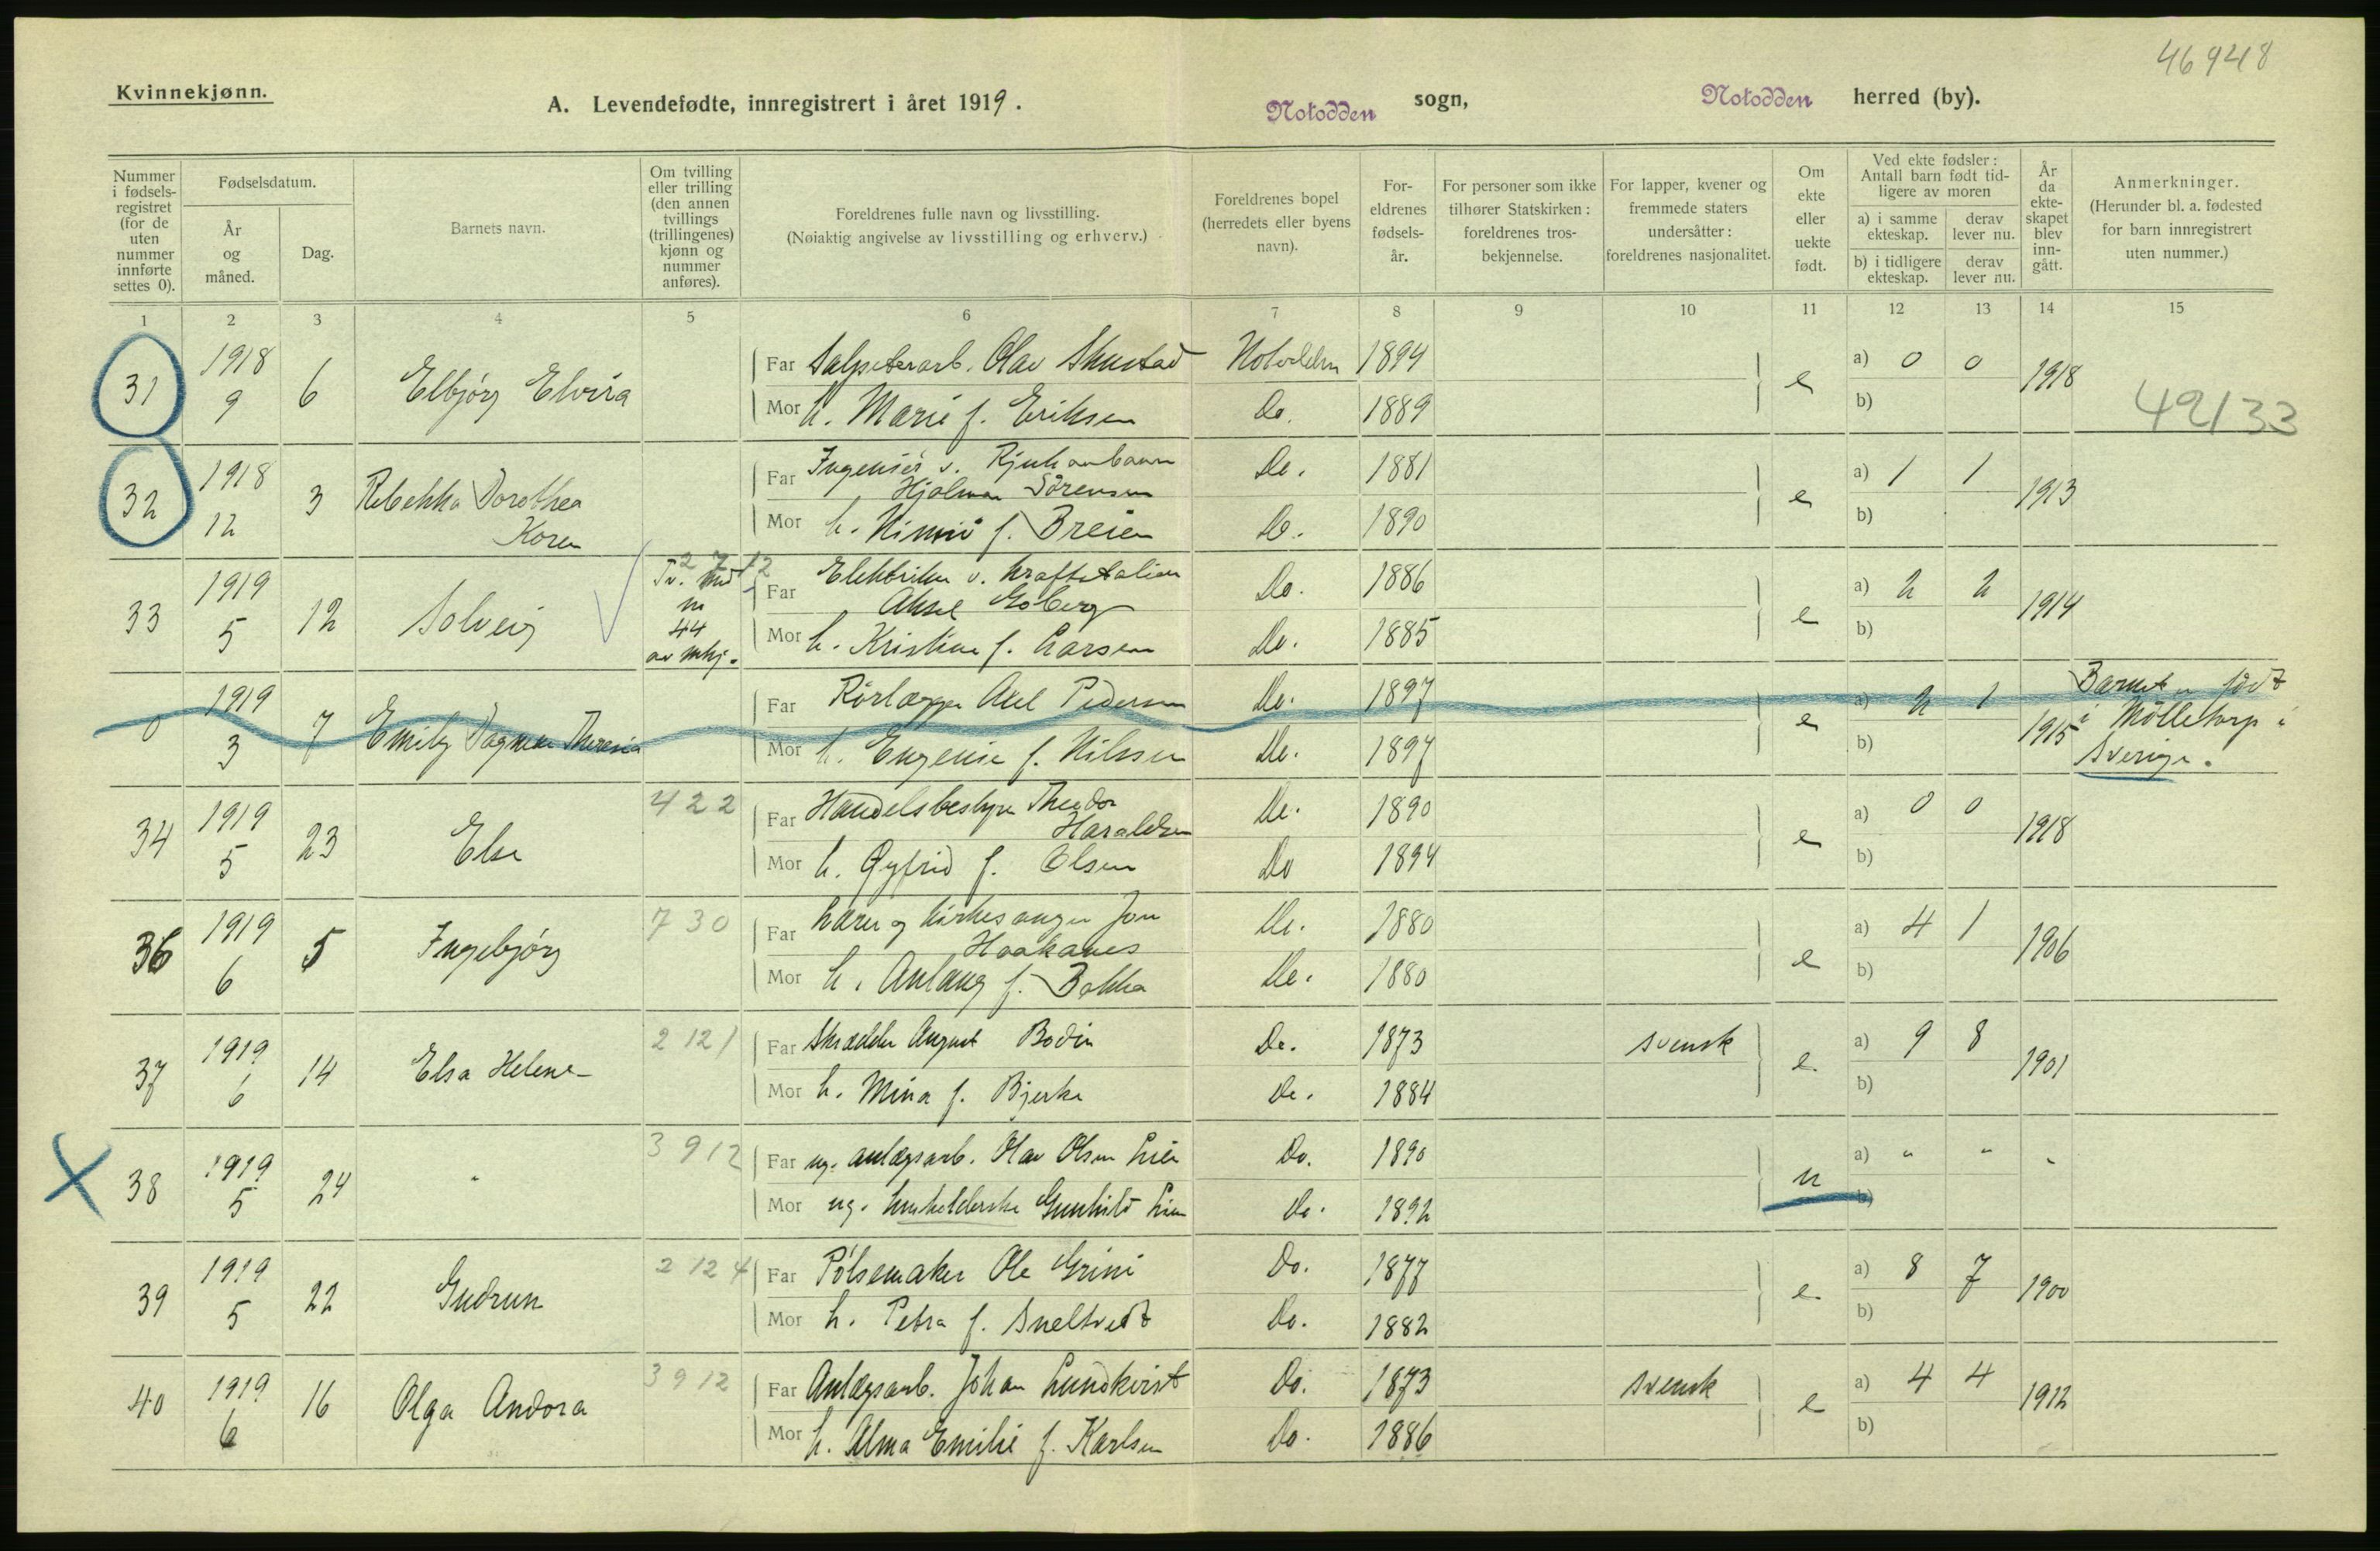 46948
Kvinnekjønn.
A. Levendefødte, innregistrert i året 1919.
Notodden sogn, Notodden herred (by).
Nummer i fødsels-registret (for de uten nummer innførte settes 0).
Fødselsdatum.
År og måned.
Dag.
Barnets navn.
Om tvilling eller trilling (den annen tvillings (trillingenes) kjønn og nummer anføres).
Foreldrenes fulle navn og livsstilling.
(Nøiaktig angivelse av livsstilling og erhverv.)
Foreldrenes bopel (herredets eller byens navn).
For-eldrenes fødsels-år.
For personer som ikke tilhører Statskirken: foreldrenes tros-bekjennelse.
For lapper, kvener og fremmede staters undersåtter: foreldrenes nasjonalitet.
Om ekte eller uekte født.
Ved ekte fødsler: Antall barn født tid-ligere av moren
a) i samme ekteskap. derav lever nu.
b) i tidligere ekteskap. derav lever nu.
År da ekte-skapet blev inn-gått.
Anmerkninger.
(Herunder bl. a. fødested for barn innregistrert uten nummer.)
1 2 3 4 5 6 7 8 9 10 11 12 13 14 15
31 1918 9 6 Elbjørg Elvira Far Salpeterarb. Olav Skustad Notodden 1894 e a) 0 0 1918
Mor h. Marie f. Eriksen Do. 1889 b) 49133
32 1918 12 3 Rebekka Dorothea Koren Far Ingeniør v. Rjukanbanen Hjalmar Sørensen Do. 1881 e a) 1 1 1913
Mor h. Mimmi f. Breien Do. 1890 b)
33 1919 5 12 Solveig Tv. med nr 44 av mkj. 2 7 12 Far Elektriker v. kraftstation Aksel Goberg Do. 1886 e a) 2 2 1914
Mor h. Kristine f. Larsen Do. 1885 b)
0 1919 3 7 Emily Dagmar Theresia Far Rørlægger Axel Pedersen Do. 1897 e a) 2 1 1915 Barnet er født i Mölletorp i Sverige.
Mor h. Eugenie f. Nilssen Do. 1897 b)
34 1919 5 23 Else 4 2 2 Far Handelsbestyrer Theodor Haraldsen Do. 1890 e a) 0 0 1918
Mor h. Gyfrid f. Olsen Do 1894 b)
36 1919 6 5 Ingebjørg 7 3 0 Far Lærer og kirkesanger Jon Haakanes Do. 1880 e a) 4 1 1906
Mor h. Anlaug f. Bakka Do. 1880 b)
37 1919 6 14 Elsa Helene 2 12 1 Far Skrædder August Bodin Do. 1873 svensk e. a) 9 8 1901
Mor h. Mina f. Bjerke Do. 1884 b)
38 1919 5 24 " 3 9 12 Far ug. anlægsarb. Olav Olsen Lien Do. 1890 u a) " " "
Mor ug. husholderske Gunhild Lien Do. 1892 b)
39 1919 5 22 Gudrun 2 12 4 Far Pølsemaker Ole Grini Do. 1877 e. a) 8 7 1900
Mor h. Petra f. Sneltvedt Do. 1882 b)
40 1919 6 16 Olga Andora 3 9 12 Far Anlægsarb. Johan Lundkvist Do. 1873 svensk e a) 4 4 1912
Mor h. Alma Emilie f. Karlsen Do. 1886 b)